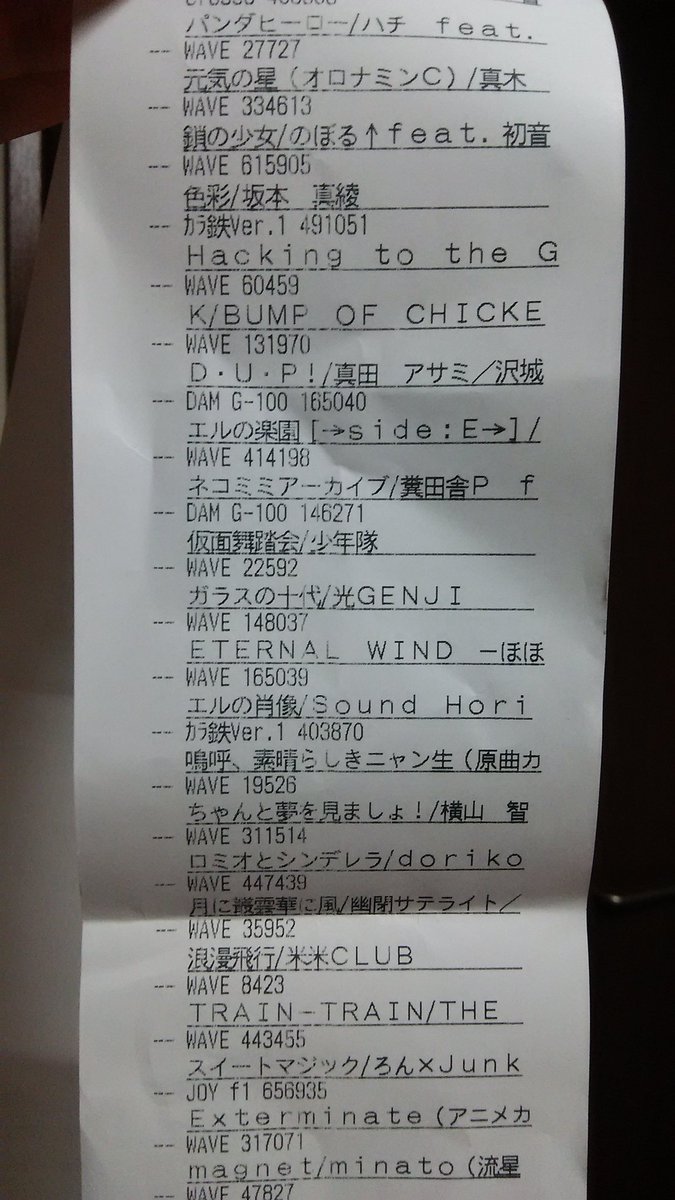 パンダヒーロー/ハチ　feat.
-- WAVE 27727
元気の星（オロナミンC）/真木
-- WAVE 334613
鎖の少女/のぼる↑feat. 初音
-- WAVE 615905
色彩/坂本　真綾
-- ｶﾗ鉄Ver.1 491051
Hacking to the G
-- WAVE 60459
K/BUMP OF CHICKE
-- WAVE 131970
D・U・P!/真田　アサミ／沢城
-- DAM G-100 165040
エルの楽園 [→side:E→] /
-- WAVE 414198
ネコミミアーカイブ/糞田舎P　f
-- DAM G-100 146271
仮面舞踏会/少年隊
-- WAVE 22592
ガラスの十代/光GENJI
-- WAVE 148037
ETERNAL WIND －ほほ
-- WAVE 165039
エルの肖像/Sound Hori
-- ｶﾗ鉄Ver.1 403870
嗚呼、素晴らしきニャン生（原曲カ
-- WAVE 19526
ちゃんと夢を見ましょ！/横山　智
-- WAVE 311514
ロミオとシンデレラ/doriko
-- WAVE 447439
月に叢雲華に風/幽閉サテライト／
-- WAVE 35952
浪漫飛行/米米CLUB
-- WAVE 8423
TRAIN-TRAIN/THE
-- WAVE 443455
スイートマジック/ろん×Junk
-- JOY f1 656935
Exterminate（アニメカ
-- WAVE 317071
magnet/minato（流星
WAVE 47827